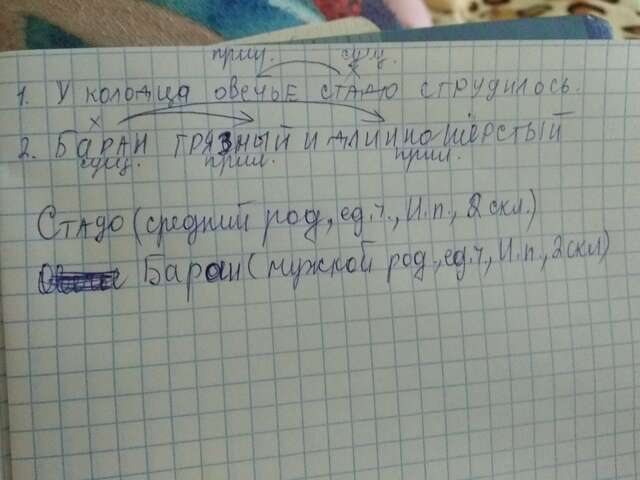 прил. сущ.
х
1. У колодца овечье стадо струдилось.
х
2. Баран грязный и длинношёрстый
сущ. прил. прил.
Стадо (средний род, ед.ч., И.п., 2 скл.)
Баран (мужской род, ед.ч, И.п., 2 скл)